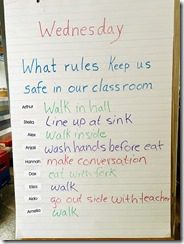 Wednesday
What rules Keep us
safe in our classroom
Arthur Walk in hall
Stella Line up at sink
Alex Walk inside
wash hands before eat
Hannah make conversation
Dax eat with fork
Elias walk
Aldo go out side with teacher
Amelia walk